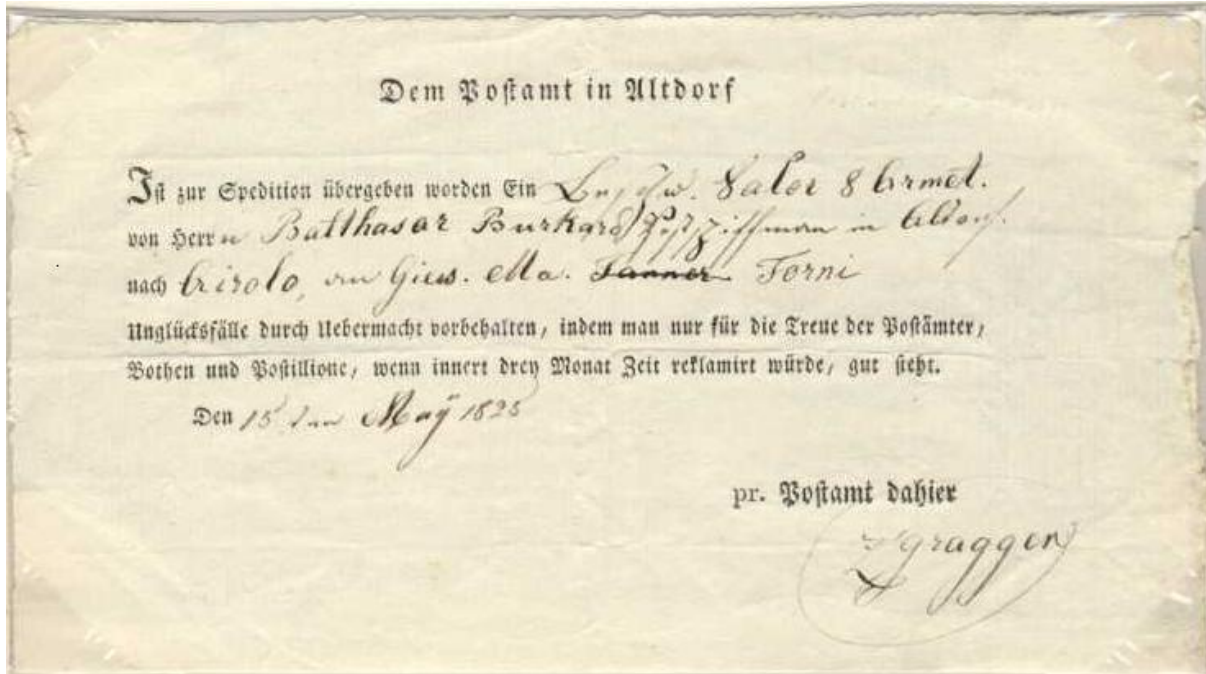 Dem Postamt in Altdorf
Ist zur Spedition übergeben worden Ein Valor 8
von Herrn Balthasar Burkard in Altdorf.
nach Airolo, an Gius. Ma. Tanner Forni
Unglücksfälle durch Uebermacht vorbehalten, indem man nur für die Treue der Postämter,
Bothen und Postillione, wenn innert drey Monat Zeit reklamirt würde, gut steht.
Den 15 ten Maÿ 1825
pr. Postamt dahier
Zgraggen